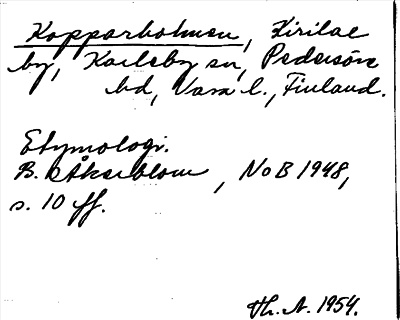 Kopparholmen, Kirilae
by, Karleby sn, Pedersöre
hd, Vasa l., Finland.
Etymologi.
B. Åkerblom, NoB 1948,
s. 10 ff.
Th. A. 1954.